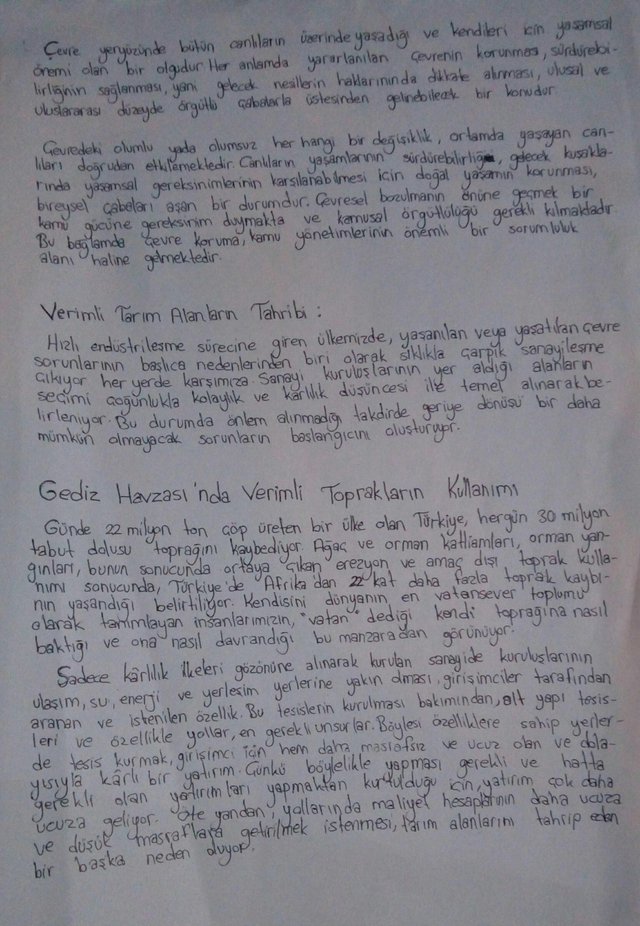 Çevre yeryüzünde bütün canlıların üzerinde yaşadığı ve kendileri için yaşamsal
önemi olan bir olgudur. Her anlamda yararlanılan çevrenin korunması, sürdürebi-
lirliğinin sağlanması, yani gelecek nesillerin haklarınında dikkate alınması, ulusal ve
uluslararası düzeyde örgütlü çabalarla üstesinden gelinebilecek bir konudur.
Çevredeki olumlu yada olumsuz her hangi bir değişiklik, ortamda yaşayan can-
lıları doğrudan etkilemektedir. Canlıların yaşamlarının sürdürebilirliği, gelecek kuşakla-
rında yaşamsal gereksinimlerinin karşılanabilmesi için doğal yaşamın korunması,
bireysel çabaları aşan bir durumdur. Çevresel bozulmanın önüne geçmek bir
kamu gücüne gereksinim duymakta ve kamusal örgütlülüğü gerekli kılmaktadır.
Bu bağlamda çevre koruma, kamu yönetimlerinin önemli bir sorumluluk
alanı haline gelmektedir.
Verimli Tarım Alanların Tahribi :
Hızlı endüstrileşme sürecine giren ülkemizde, yaşanılan veya yaşatılan çevre
sorunlarının başlıca nedenlerinden biri olarak sıklıkla çarpık sanayileşme
çıkıyor her yerde karşımıza. Sanayi kuruluşlarının yer aldığı alanların
seçimi çoğunlukla kolaylık ve karlılık düşüncesi ile temel alınarak be-
lirleniyor. Bu durumda önlem alınmadığı takdirde geriye dönüşü bir daha
mümkün olmayacak sorunların başlangıcını oluşturuyor.
Gediz Havzası'nda Verimli Toprakların Kullanımı
Günde 22 milyon ton çöp üreten bir ülke olan Türkiye, hergün 30 milyon
tabut dolusu toprağını kaybediyor. Ağaç ve orman katliamları, orman yan-
gınları, bunun sonucunda ortaya çıkan erezyon ve amaç dışı toprak kulla-
nımı sonucunda, Türkiye'de Afrika'dan 22 kat daha fazla toprak kaybı-
nın yaşandığı belirtiliyor. Kendisini dünyanın en vatansever toplumu
olarak tanımlayan insanlarımızın, "vatan" dediği kendi toprağına nasıl
baktığı ve ona nasıl davrandığı bu manzaradan görünüyor.
Sadece kârlılık ilkeleri gözönüne alınarak kurulan sanayide kuruluşlarının
ulaşım, su, enerji ve yerleşim yerlerine yakın olması, girişimciler tarafından
aranan ve istenilen özellik. Bu tesislerin kurulması bakımından, alt yapı tesis-
leri ve özellikle yollar, en gerekli unsurlar. Böylesi özelliklere sahip yerler-
de tesis kurmak, girişimci için hem daha masrafsız ve ucuz olan ve dola-
yısıyla kârlı bir yatırım. Çünkü böylelikle yapması gerekli ve hatta
gerekli olan yatırımları yapmaktan kurtulduğu için, yatırım çok daha
ucuza geliyor. Öte yandan, yollarında maliyet hesaplarının daha ucuza
ve düşük masraflara getirilmek istenmesi, tarım alanlarını tahrip eden
bir başka neden oluyor.